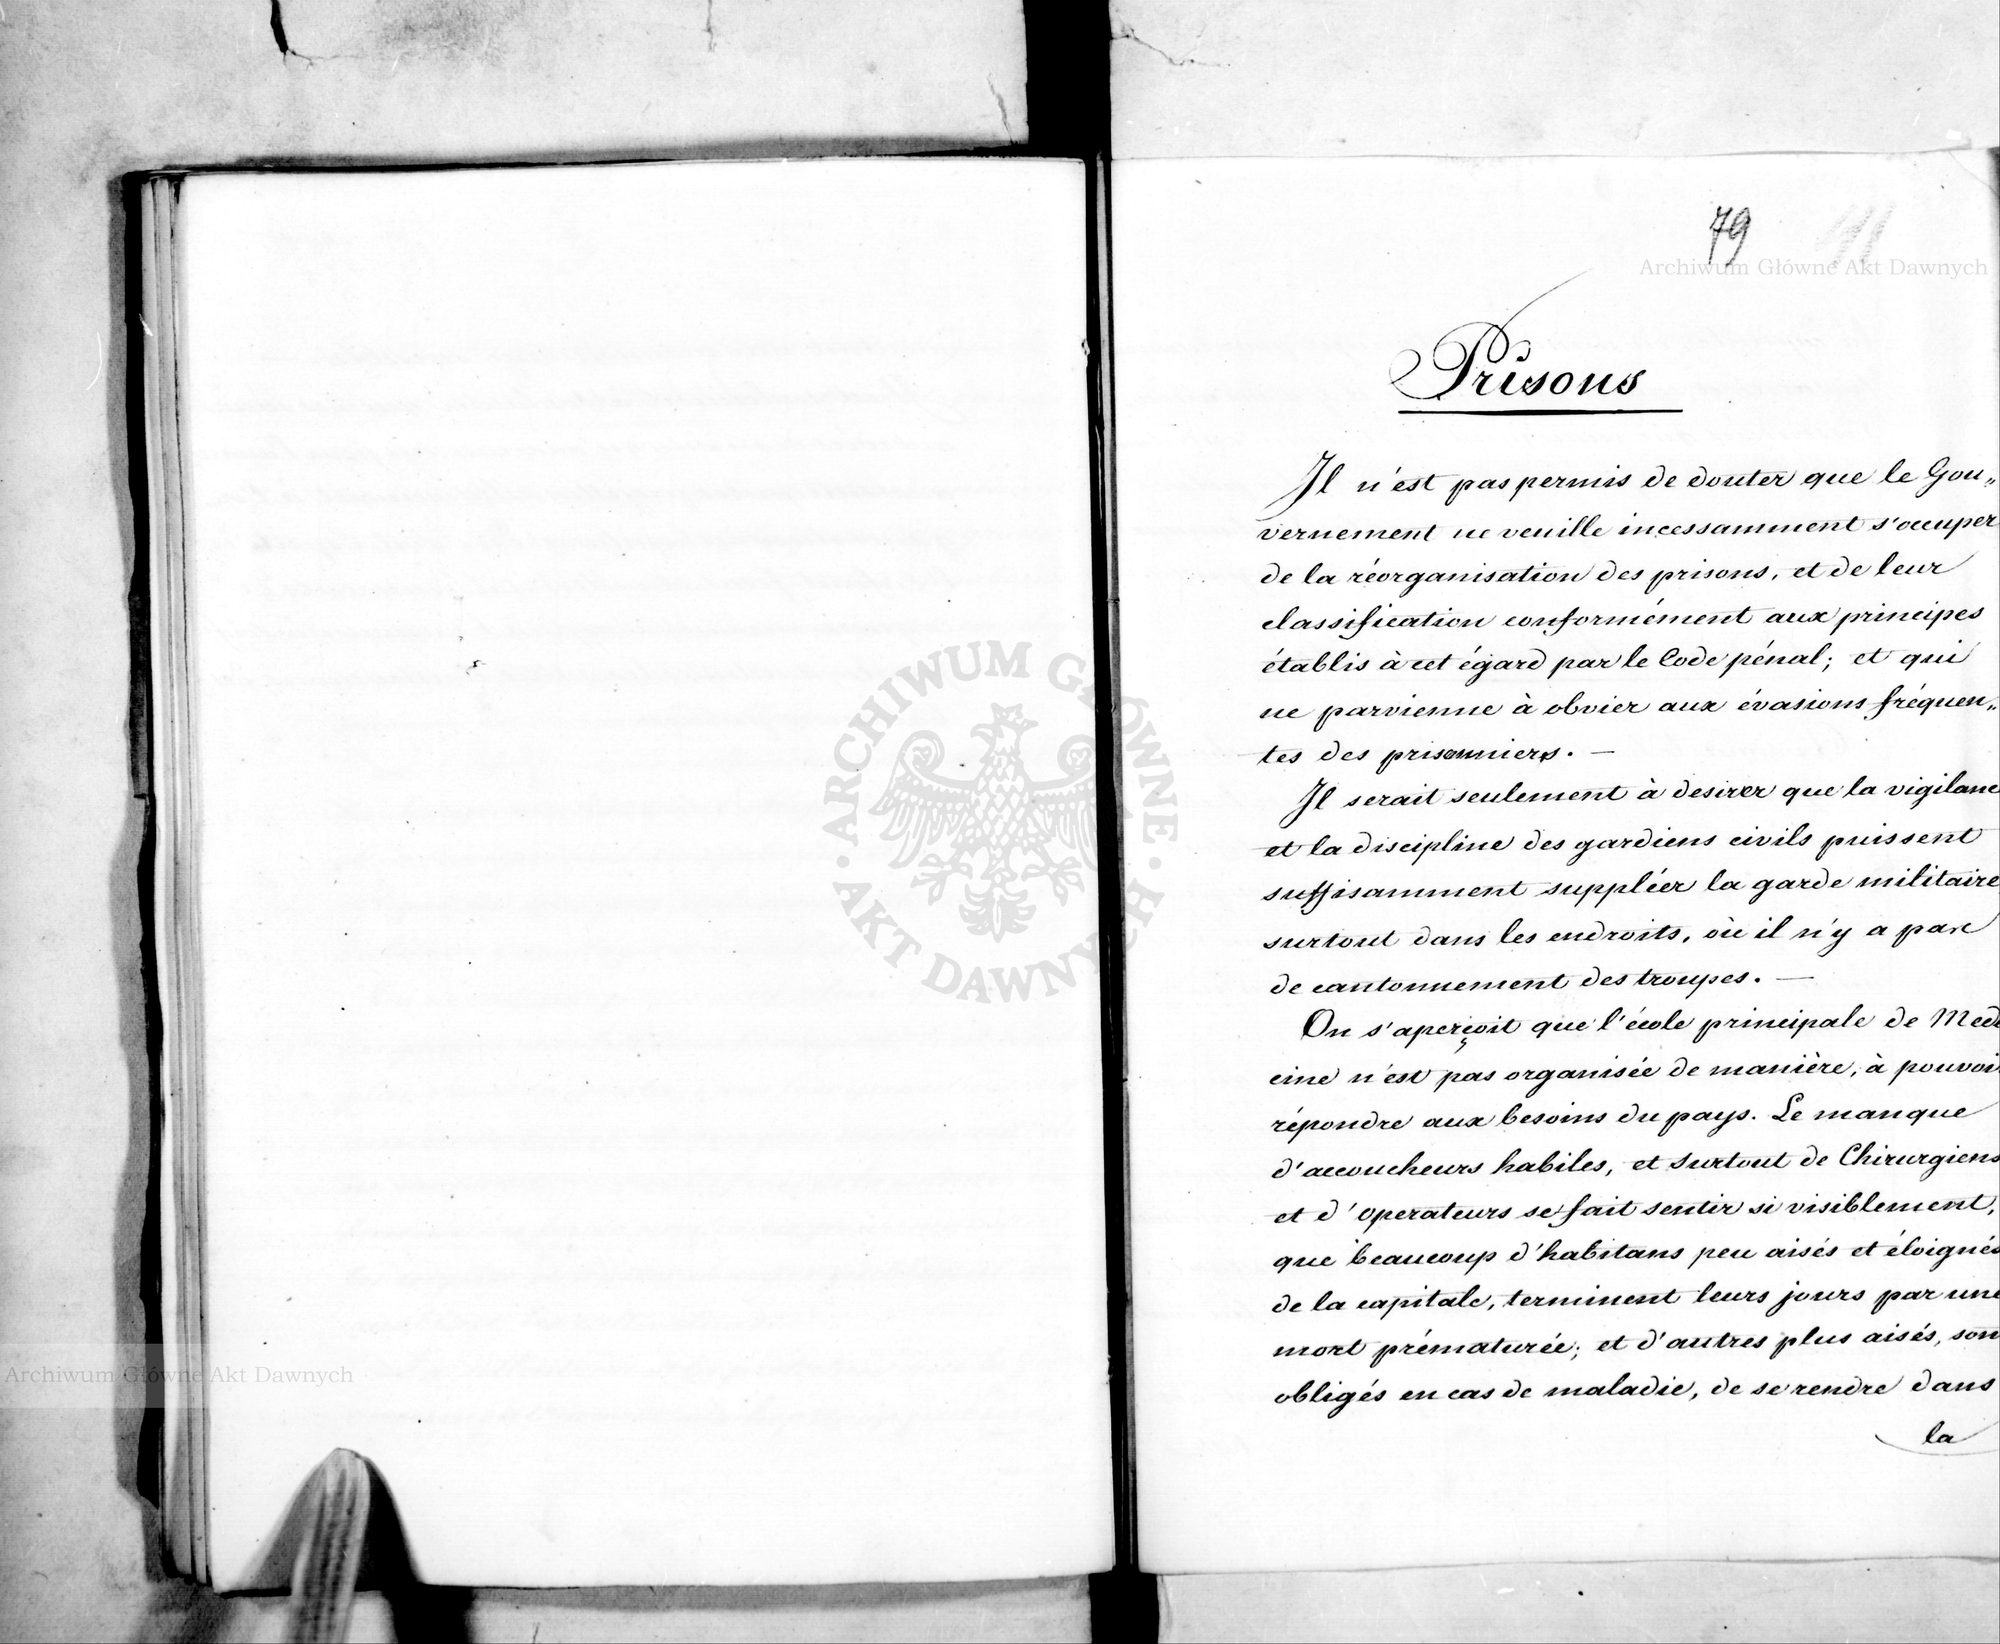 79
Archiwum Główne Akt Dawnych
Prisons
Il n'est pas permis de douter que le Gou„
vernement ne veuille incessamment s'occuper
de la réorganisation des prisons, et de leur
classification conformément aux principes
établis à cet égard par le Code pénal; et qui
ne parvienne à obvier aux évasions fréquen„
tes des prisonniers. —
Il serait seulement à desirer que la vigilanc
et la discipline des gardiens civils puissent
suffisamment suppléer la garde militaire
surtout dans les endroits, où il n'y a pas
de cantonnement des troupes. —
On s'aperçoit que l'école principale de Mede
cine n'est pas organisée de manière, à pouvoi
répondre aux besoins du pays. Le manque
d'accoucheurs habiles, et surtout de Chirurgiens
et d'operateurs se fait sentir si visiblement,
que beaucoup d'habitans peu aisés et éloignés
de la capitale, terminent leurs jours par une
mort prématurée; et d'autres plus aisés, son
obligés en cas de maladie, de se rendre dans
la
ARCHIWUM GŁÓWNE AKT DAWNYCH
Archiwum Główne Akt Dawnych